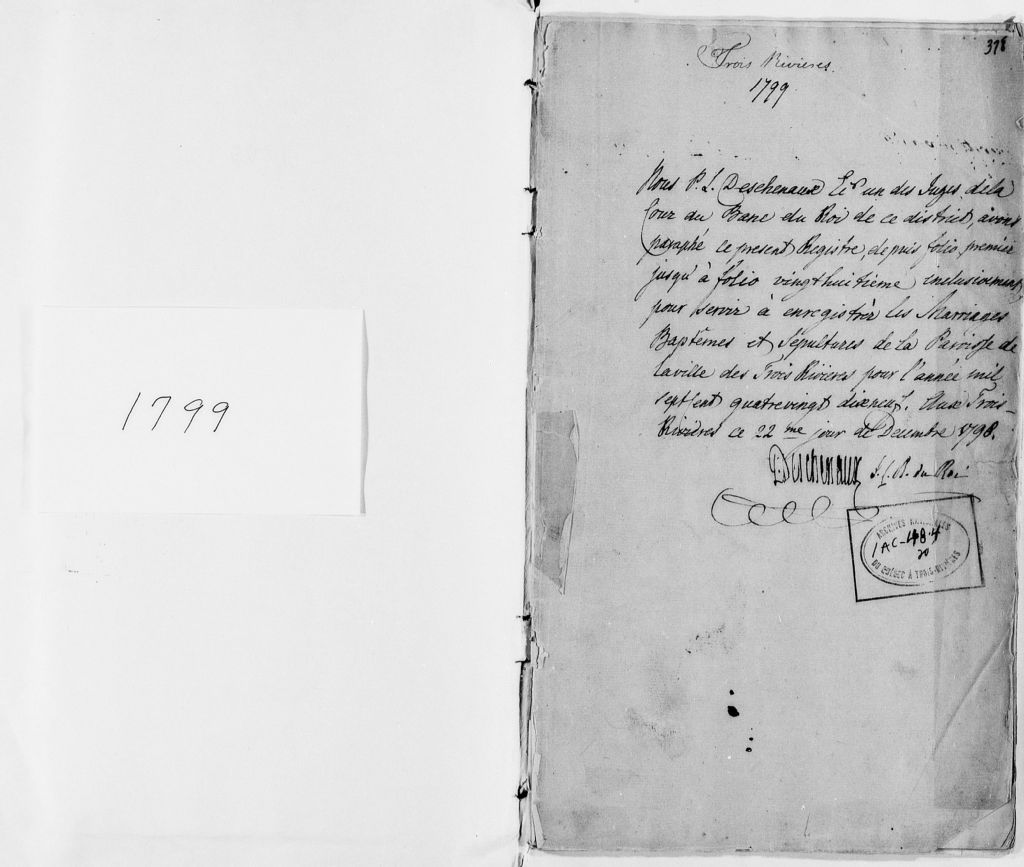 1799
378
Trois Rivieres.
1799
Nous P. L. Deschenaux Ecr un des Juges de la
Cour du Banc du Roi de ce district, avons
paraphé ce present Registre, depuis folio premier
jusqu'à folio vingthuitieme inclusivement
pour servir à enregistrér les Marriages
Baptêmes et Sépultures de la Paroisse de
la ville des Trois Rivieres pour l'année mil
septcent quatrevingt dixneuf. Aux Trois-
Rivières ce 22 me jour de Decembre 1798.
Deschenaux J. C. B. du Roi
ARCHIVES NATIONALES
1AC-484
20
DU QUÉBEC À TROIS-RIVIÈRES